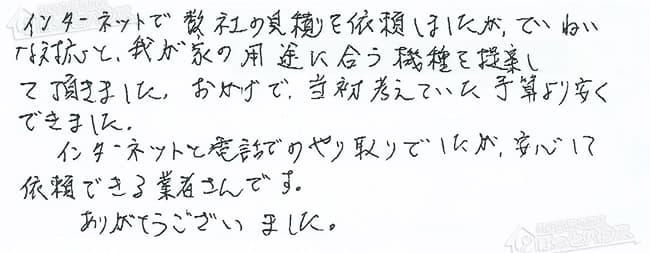 インターネットで数社の見積を依頼しましたが、ていねい
な対応と、我が家の用途に合う機種を提案し
て頂きました。おかげで、当初考えていた予算より安く
できました。
インターネットと電話でのやり取りでしたが、安心して
依頼できる業者さんです。
ありがとうございました。